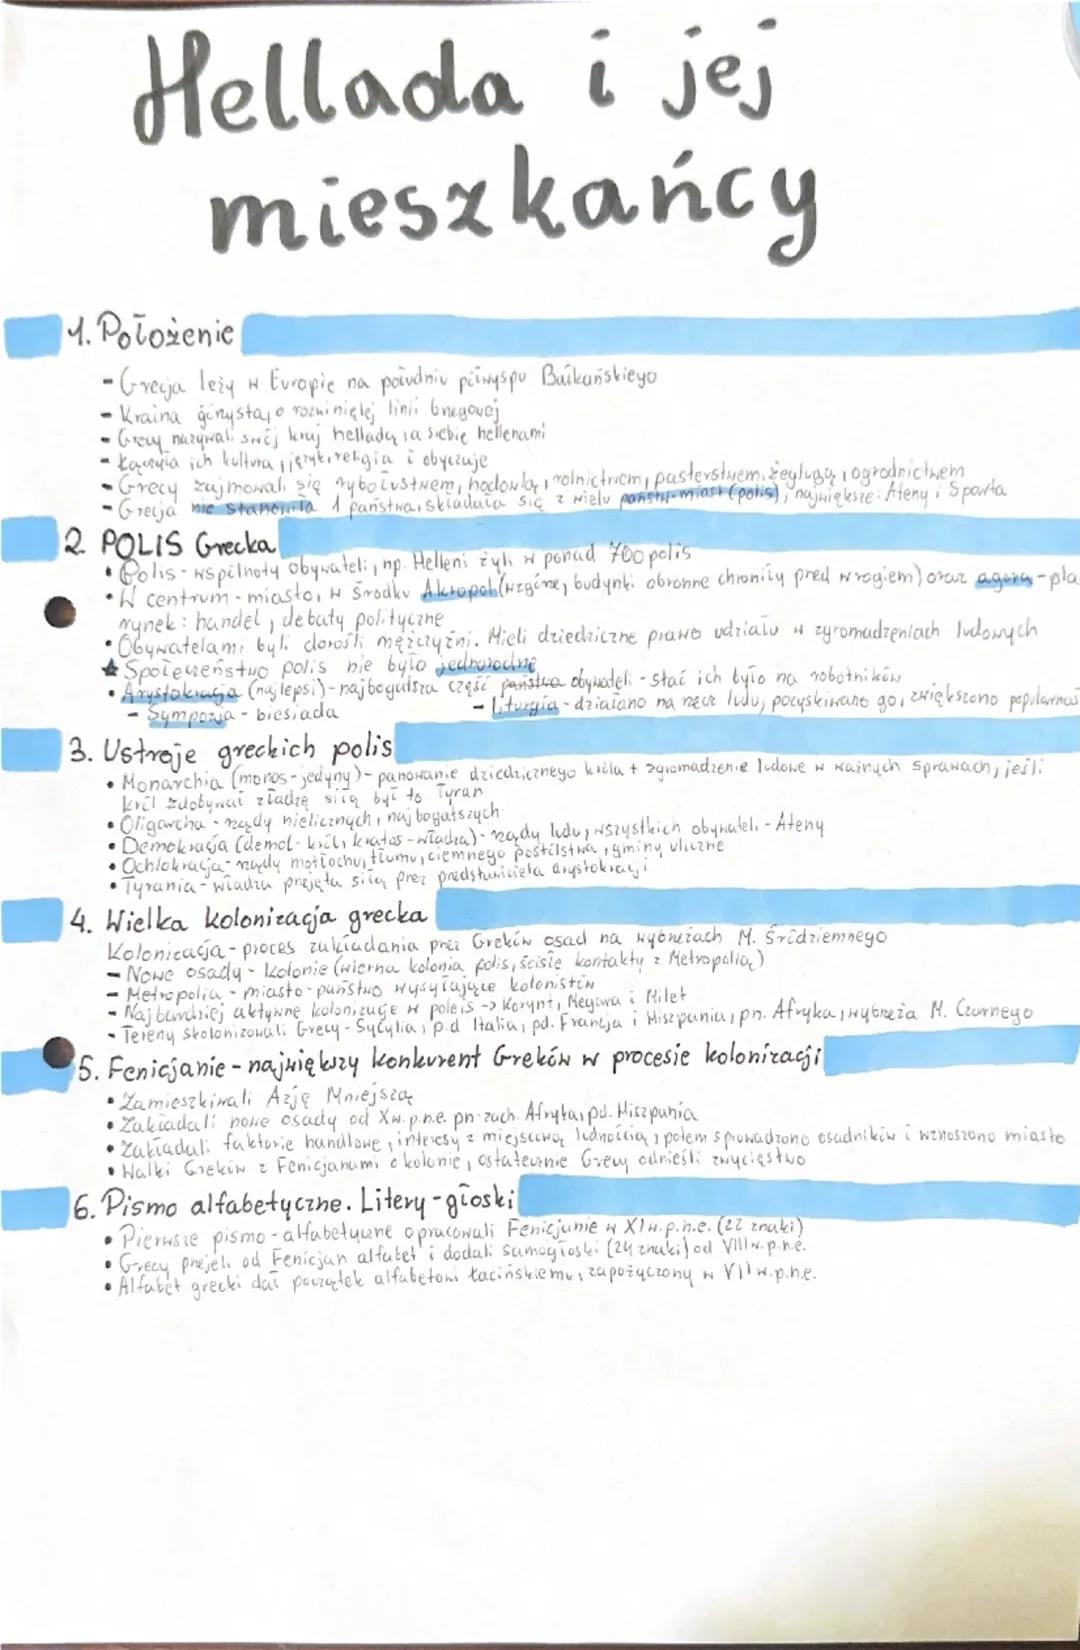 Hellada i jej
mieszkańcy
1. Położenie
- Grecja leży w Europie na południu półwyspu Bałkańskiego
- Kraina górzysta, o rozwiniętej linii brzegowej
- Grecy nazywali swój kraj helladą, a siebie hellenami
- Łączyła ich kultura, język, religia i obyczaje
- Grecy zajmowali się rybołustwem, hodowlą, rolnictwem, pasterstwem, żeglugą, ogrodnictwem
- Grecja nie stanowiła 1 państwa, składała się z wielu państw-miast (polis), największe: Ateny i Sparta
2. POLIS Grecka
• Polis - wspólnoty obywateli, np. Helleni żyli w ponad 700 polis
• W centrum - miasto, w środku Akropol (wzgórze, budynki obronne chroniły pred wrogiem) oraz agora - pla
rynek: handel, debaty polityczne
• Obywatelami byli dorośli mężczyźni. Mieli dziedziczne prawo udziału w zgromadzeniach ludowych
★ Społeczeństwo polis nie było jednorodne
• Arystokracja (najlepsi) - najbogatsza część państwa obywateli - stać ich było na robotników
- Sympozja - biesiada
- Liturgia - działano na rzecz ludu, pozyskiwano go, zwiększono popularność
3. Ustroje greckich polis
• Monarchia (monos - jedyny) - panowanie dziedzicznego króla + zgromadzenie ludowe w ważnych sprawach, jeśli
król zdobywał władzę siłą był to Tyran
• Oligarcha - rządy nielicznych, najbogatszych
• Demokracja (demol - król, kratos - władza) - rządy ludu, wszystkich obywateli - Ateny
• Ochlokracja - rządy motłochu, tłumu, ciemnego pospólstwa, gminy uliczne
• Tyrania - władza prejęta siłą prez predstawiciela arystokracji
4. Wielka kolonizacja grecka
Kolonizacja - proces zakładania prez Greków osad na wybrzeżach M. Śródziemnego
- Nowe osady - kolonie (wierna kolonia polis, ścisłe kontakty z Metropolią)
- Metropolia - miasto-państwo wysyłające kolonistów
- Najbardziej aktywne kolonizuje w poleis -> Korynt, Megara i Milet
- Tereny skolonizowali Grecy - Sycylia, p.d Italia, pd. Francja i Hiszpania, pn. Afryka, wybrzeża M. Czarnego
5. Fenicjanie - największy konkurent Greków w procesie kolonizacji
• Zamieszkiwali Azję Mniejszą
• Zakładali nowe osady od Xw.p.n.e. pn-zach. Afryka, pd. Hiszpania
• Zakładali faktorie handlowe, interesy z miejscową ludnością, potem sprowadzono osadników i wznoszono miasto
• Walki Greków z Fenicjanami o kolonie, ostatecznie Grecy odnieśli zwycięstwo
6. Pismo alfabetyczne. Litery-głoski
• Pierwsze pismo - alfabetyczne opracowali Fenicjanie w XI w.p.n.e. (22 znaki)
• Grecy prejeli od Fenicjan alfabet i dodali samogłoski (24 znaki) od VIII w.p.n.e.
• Alfabet grecki dał początek alfabetowi łacińskiemu, zapożyczony w VII w.p.n.e.